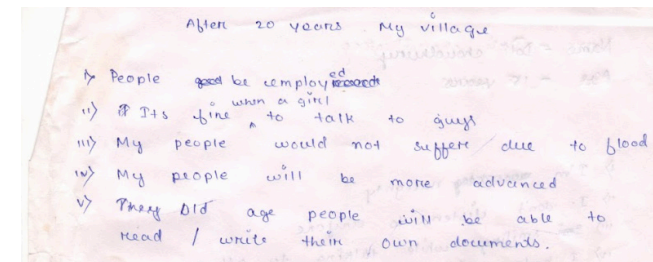 After 20 years My village
i) People be employed
when a girl
ii) Its fine to talk to guys
iii) My people would not suffere due to blood
iv) My people will be more advanced
v) They Old age people will be able to
read / write their own documents.